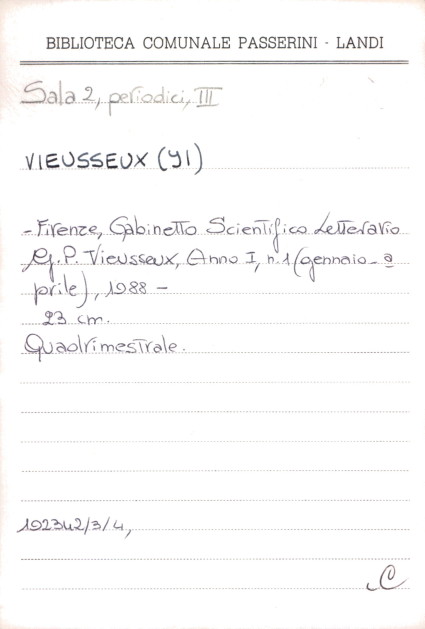 BIBLIOTECA COMUNALE PASSERINI - LANDI
Sala 2, periodici, III
VIEUSSEUX (YI)
- Firenze, Gabinetto Scientifico Letterario
G. P. Vieusseux, Anno I, n. 1 (gennaio - a
prile), 1988 -
23 cm.
Quadrimestrale.
192342/3/4,
C